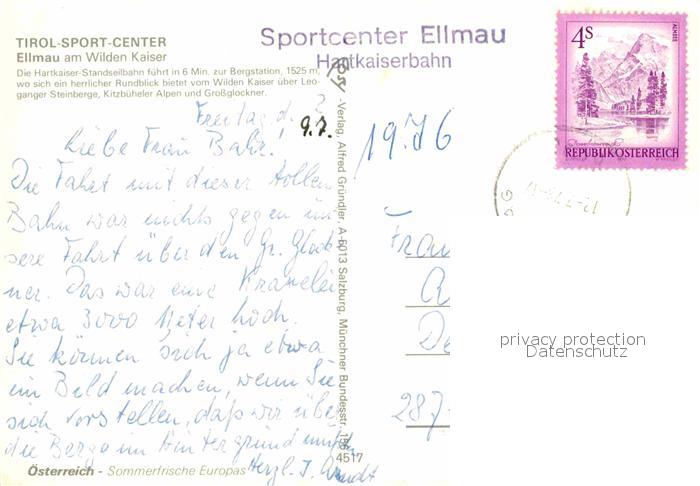 TIROL-SPORT-CENTER
Ellmau am Wilden Kaiser
Die Hartkaiser-Standseilbahn führt in 6 Min. zur Bergstation, 1525 m,
wo sich ein herrlicher Rundblick bietet vom Wilden Kaiser über Leo-
ganger Steinberge, Kitzbüheler Alpen und Großglockner.
Sportcenter Ellmau
Hartkaiserbahn
4s
ALMSEE
REPUBLIK ÖSTERREICH
Freitag, d.
9.7.
1976
Liebe Frau Bahr!
Die Fahrt mit dieser tollen
Bahn war nichts gegen un
sere Fahrt über den Gr. Glock
ner. Das war eine
etwa 3000 Meter hoch.
Sie können sich ja etwa
im Bild machen, wenn Sie
sich vorstellen, daß wir über
die Berge im Hintergrund
Herzl. I. Arndt
Frau
287
Verlag, Alfred Gründler, A-5013 Salzburg, Münchner Bundesstr.
4517
Österreich - Sommerfrische Europas
privacy protection
Datenschutz